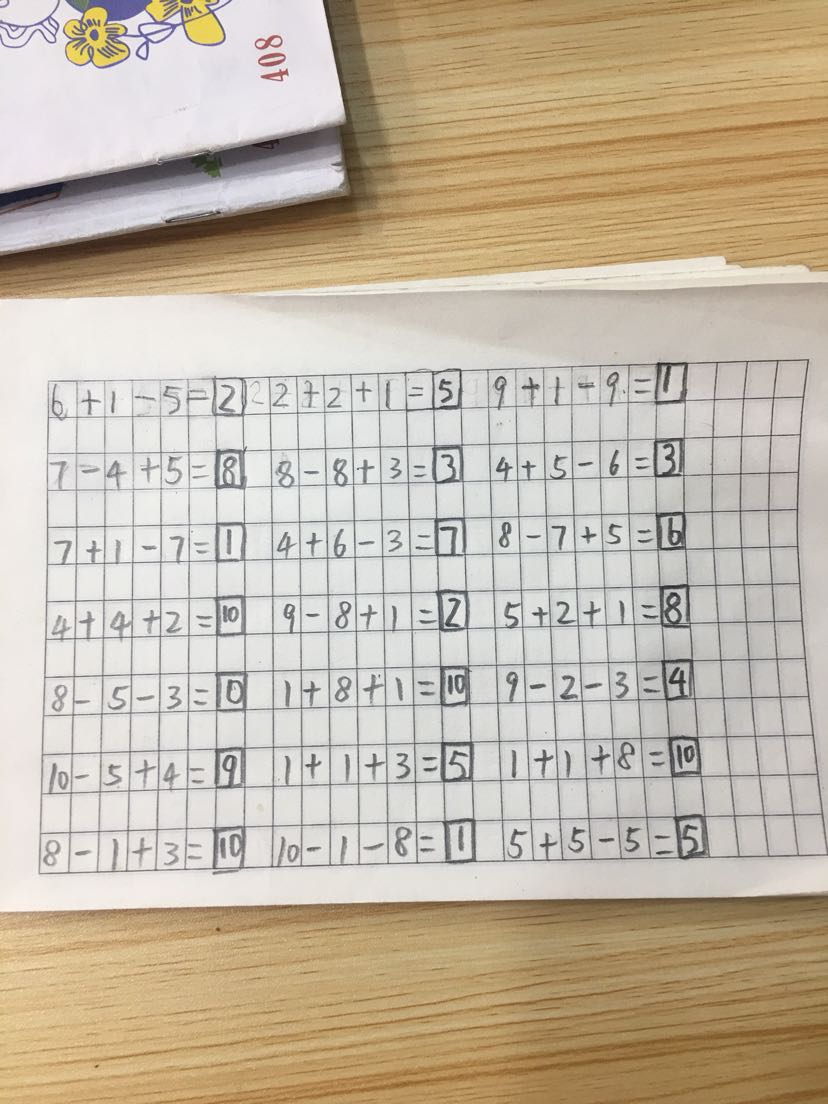 408
6+1-5=2 2+2+1=5 9+1-9=1
7-4+5=8 8-8+3=3 4+5-6=3
7+1-7=1 4+6-3=7 8-7+5=6
4+4+2=10 9-8+1=2 5+2+1=8
8-5-3=0 1+8+1=10 9-2-3=4
10-5+4=9 1+1+3=5 1+1+8=10
8-1+3=10 10-1-8=1 5+5-5=5